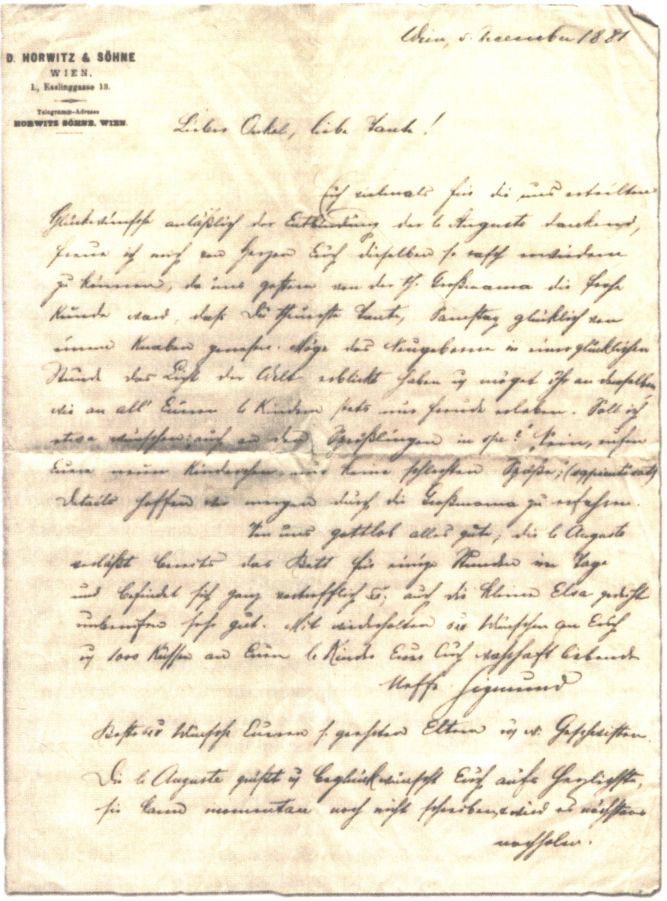 Wien, 5. November 1881
D. HORWITZ & SÖHNE
WIEN,
I., Esslinggasse 13.
Telegramm-Adresse
HORWITZ SÖHNE, WIEN.
Lieber Onkel, liebe Tante!
Euch vielmals für die uns erteilten
Glückwünsche anläßlich der Entbindung der l. Auguste dankend,
freue ich mich von Herzen Euch dieselben so rasch erwiedern
zu können, da uns gestern von der th. Großmama die frohe
Kunde ward, daß Du theuerste Tante, Samstag glücklich von
einem Knaben genesen. Möge das Neugeborene in einer glücklichen
Stunde das Licht der Welt erblickt haben u. möget Ihr an demselben
wie an all' Euren l. Kindern stets nur Freude erleben. Soll ich
etwa wünschen: auch an den Sprößlingen in spe? Nein, rufen
Eure neun Kinderchen, nur keine schlechten Späße, (sapienti sat)
Details hoffen wir morgen durch die Großmama zu erfahren.
Von uns gottlob alles gute, die l. Auguste
verläßt bereits das Bett für einige Stunden im Tage
und befindet sich ganz vortrefflich; auch die kleine Elsa gedeiht
unberufen sehr gut. Mit wiederholten Wünschen an Euch
u. 1000 Küssen an Eure l. Kinder Euer Euch wahrhaft liebender
Neffe Sigmund
Beste Wünsche Euren geehrten Eltern u. w. Geschwistern.
Die l. Auguste grüßt u. beglückwünscht Euch aufs Herzlichste,
sie kann momentan noch nicht schreiben, wird es nächstens
nachholen.